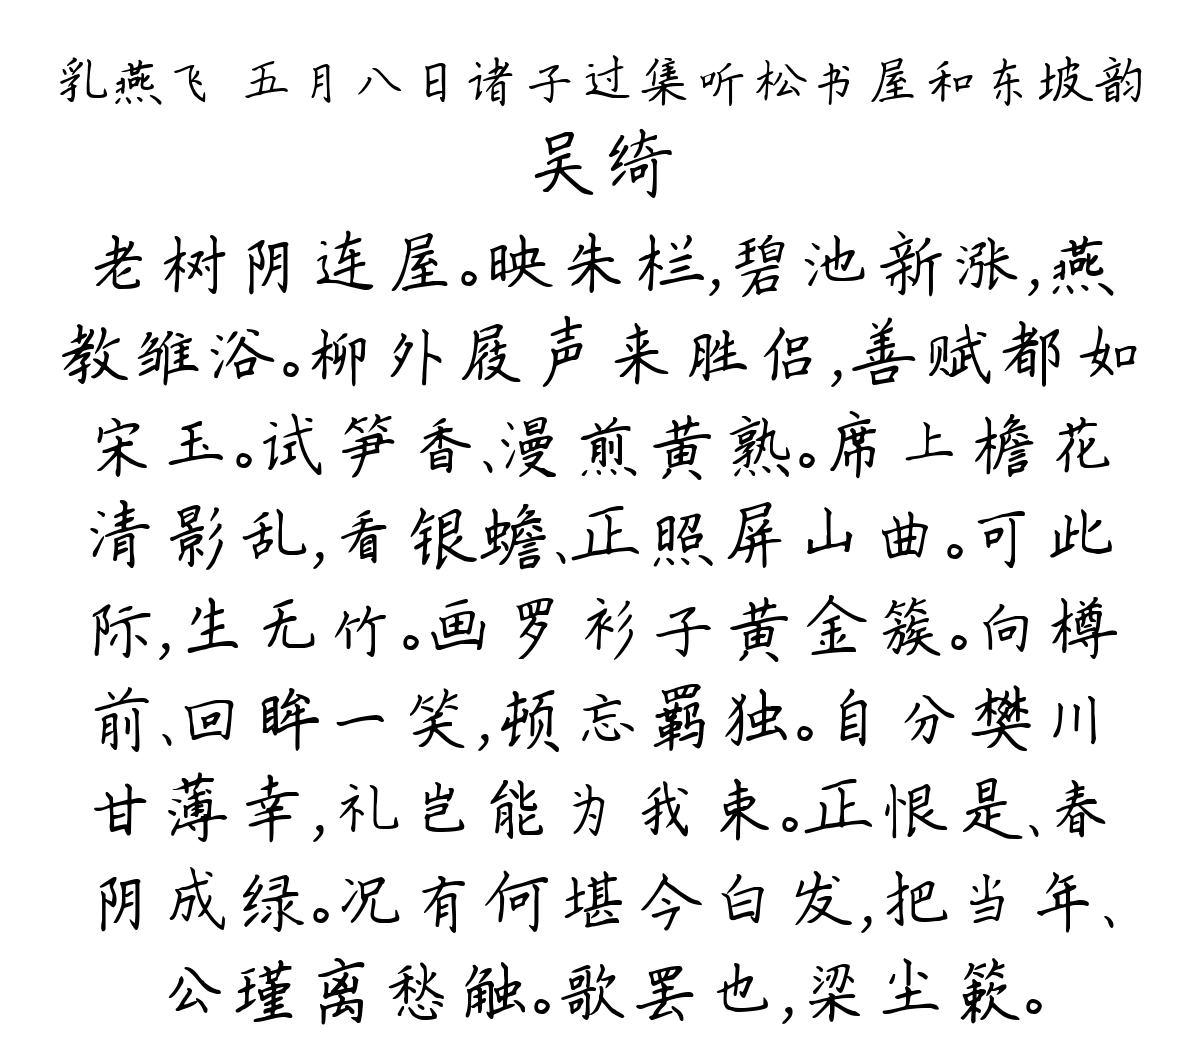 乳燕飞 五月八日诸子过集听松书屋和东坡韵
吴绮
老树阴连屋。映朱栏,碧池新涨,燕
教雏浴。柳外屐声来胜侣,善赋都如
宋玉。试笋香、漫煎黄熟。席上檐花
清影乱,看银蟾、正照屏山曲。可此
际,生无竹。画罗衫子黄金簇。向樽
前、回眸一笑,顿忘羁独。自分樊川
甘薄幸,礼岂能为我束。正恨是、春
阴成绿。况有何堪今白发,把当年、
公瑾离愁触。歌罢也,梁尘簌。